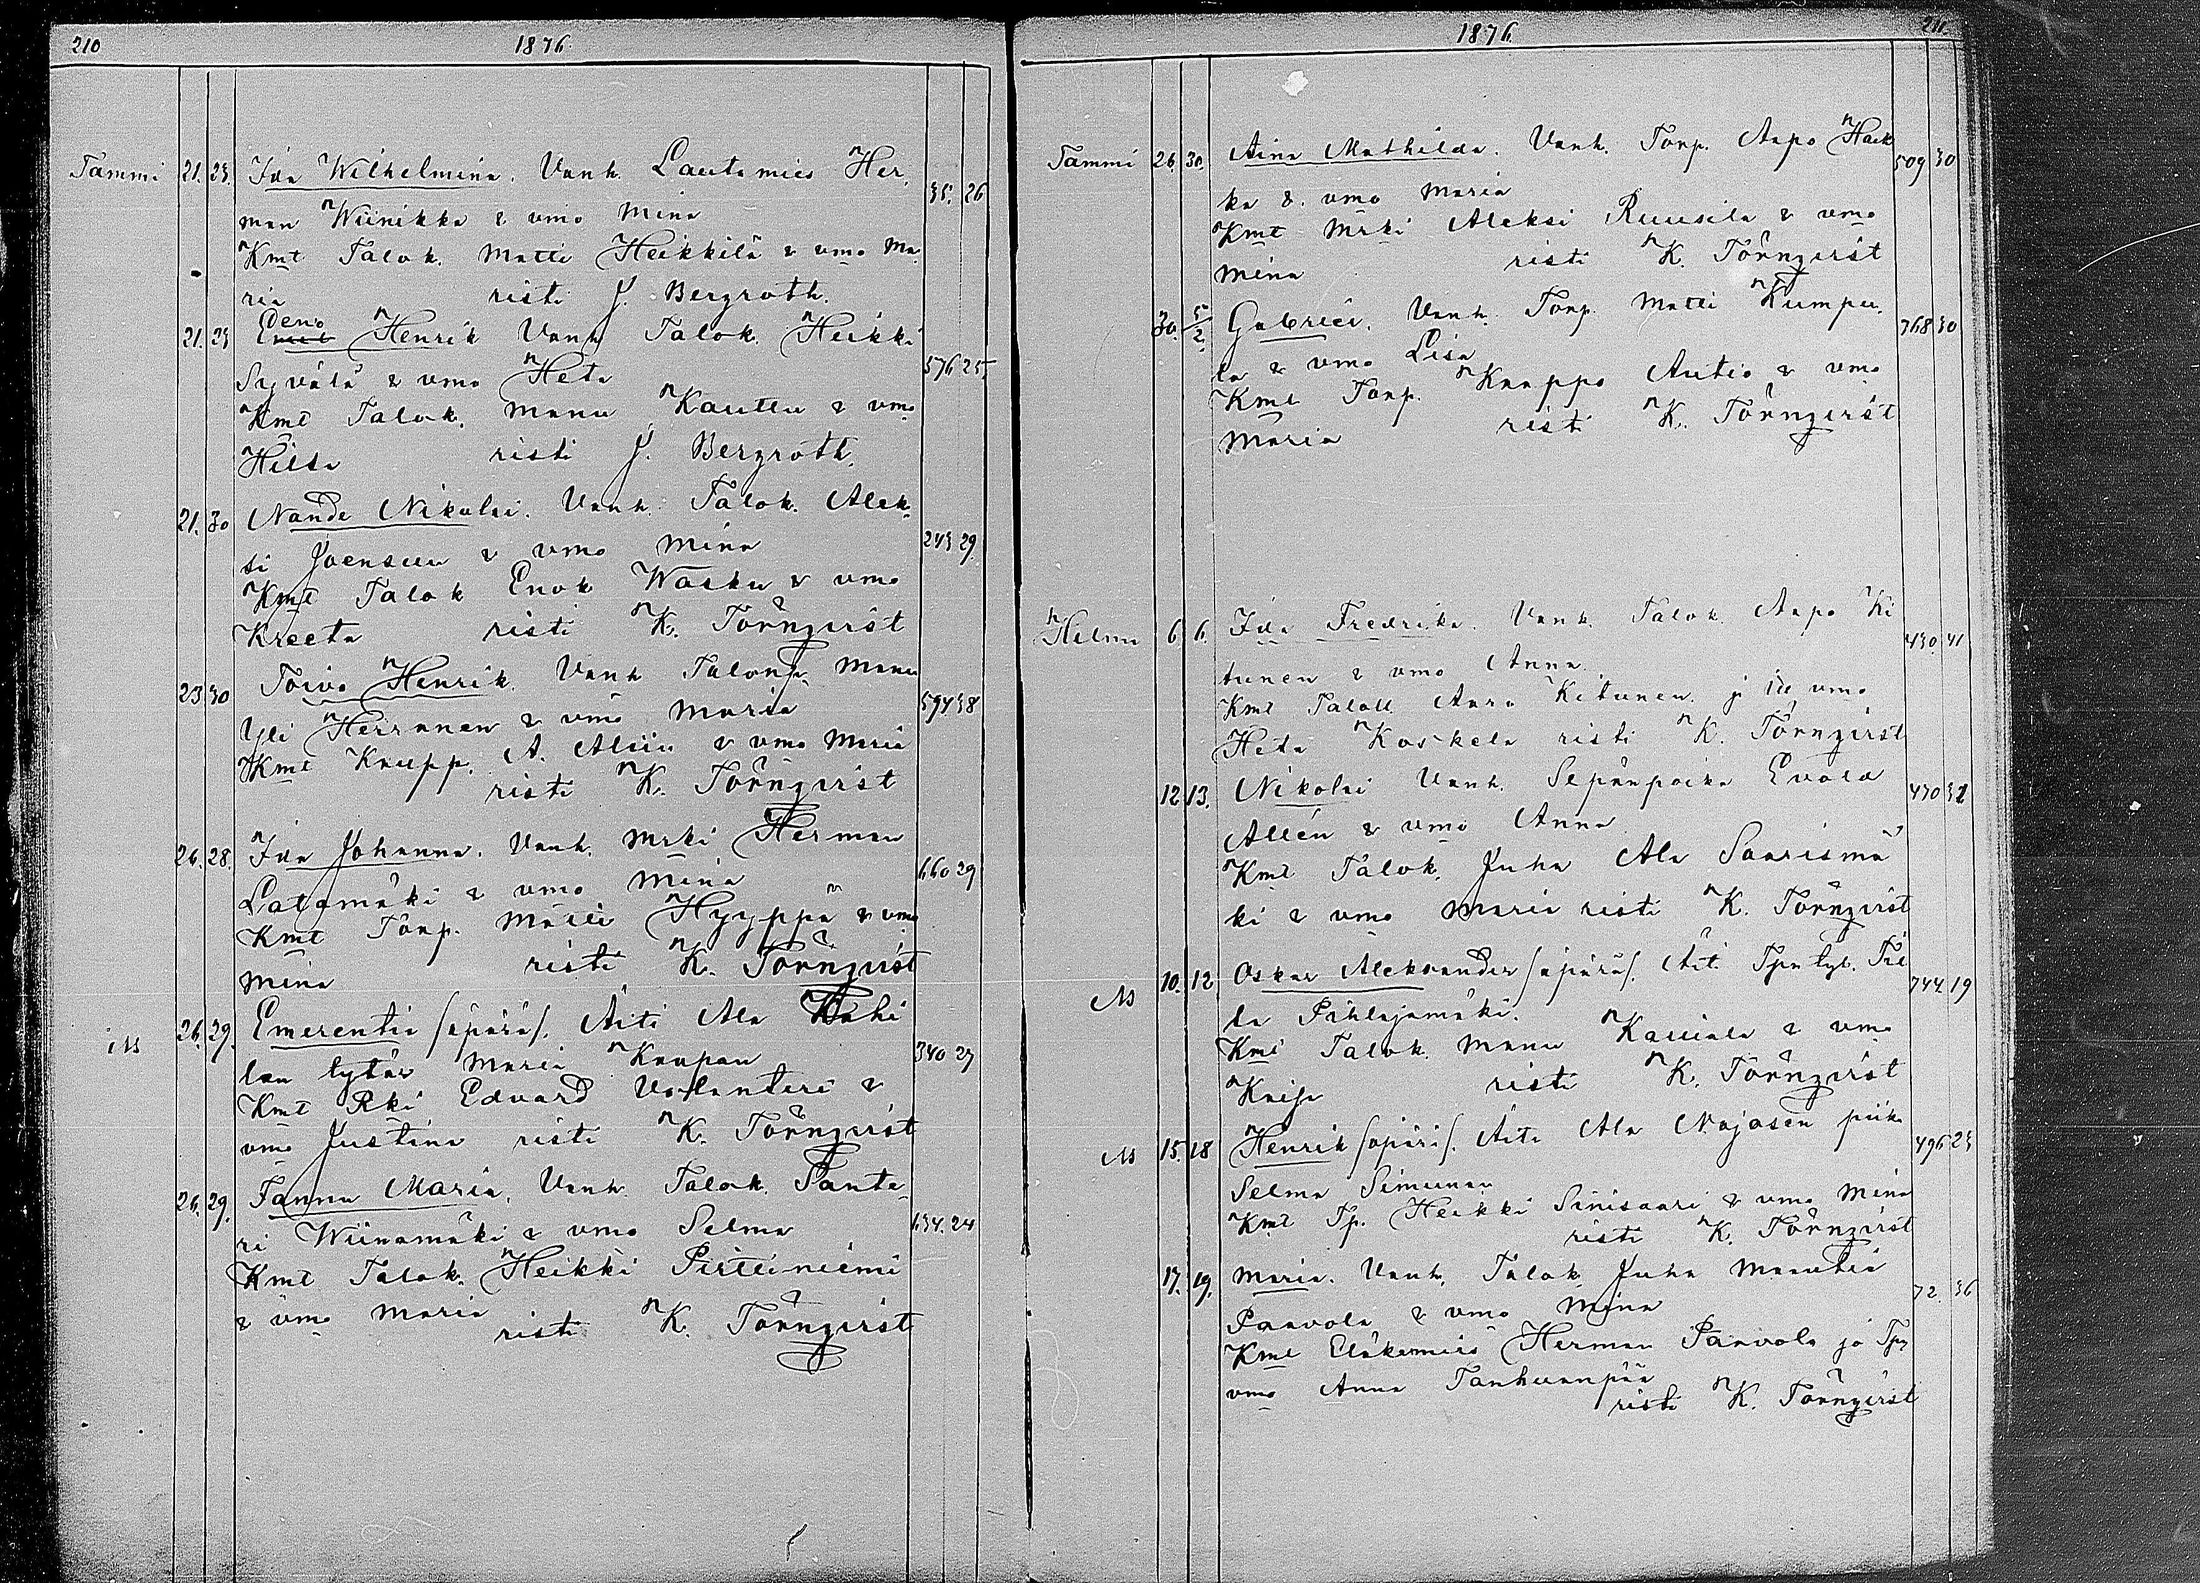 210 1876
Tammi 21. 23. Ida Wilhelmina. Vanh. Lautamies Her-
man Wiinikka & vmo Mina 35. 26
Kmt Talok. Matti Heikkilä & vmo Ma
ria risti J. Bergroth.
Eeno
21. 23 Emil Henrik Vanh Talok. Heikki
Syvälä & vmo Heta 576 25.
Kmt Talok. Manu Kauttu & vmo
Hilda risti J. Bergroth.
21. 30 Nande Nikolai. Vanh. Talok. Alek-
si Joensuu & vmo Mina 243 29.
Kmt Talok Enok Wasku & vmo
Kreeta risti K. Törnqvist
23 30 Toivo Henrik. Vanh Talonp. Manu
Yli Heirranen & vmo Maria 594 38
Kmt Kaupp. A. Aliin & vmo Maria
risti K. Törnqvist
26. 28. Ida Johanna. Vanh. Mrki Herman
Latomäki & vmo Mina 660 29
Kmt Torp. Matti Hyyppä & vmo
Mina risti K. Törnqvist
26. 29. Emerentia /äpärä/. Äiti Ala
lan tytär Maria Knapan 340 27
Kmt Rki Eduard Volanteri &
vmo Justina risti K. Törnqvist
26. 29. Fanny Maria. Vanh. Talok. Sante-
ri Wiinamäki & vmo Selma 634. 24
Kmt Talok. Heikki Pirttiniemi
& vmo Maria
risti K. Törnqvist
1876. 211
Tammi 26. 30. Aina Mathilda. Vanh. Torp. Aapo Hack 509 30
ka & vmo Maria
Kmt Mrki Aleksi Ruusila & vmo
Mina risti K. Törnqvist
30. 5/2. Gabriel. Vanh. Torp. Matti Kumpu- 768 30
la & vmo Lisa
Kmt Torp. Knappo Autio & vmo
Maria risti K. Törnqvist
Helmi 6 6. Ida Fredrika. Vanh. Talok. Aapo Ki 430 41
tunen & vmo Anna.
Kmt Talok Aaro Kitunen ja vmo
Heta Koskela risti K. Törnqvist
12 13. Nikolai Vanh. Sepänpoika Evald 430 32
Allén & vmo Anna
Kmt Talok. Juha Ala Saarismä
ki & vmo Maria risti K. Törnqvist
10. 12 Oskar Aleksander /äpärä/. Äiti Tpn tyt. 744 19
la Pihlajamäki.
Kmt Talok. Manu Kauiala & vmo
Kaisa risti K. Törnqvist
15. 18 Henrik /äpärä/. Äiti Ala Nojosen piika 496 23
Selma Simunan
Kmt Tp. Heikki Sinisaari & vmo Mina
risti K. Törnqvist
17. 19. Maria. Vanh. Talok Juha Manutia
Panvola & vmo Mina 72. 36
Kmt Eläkemies Herman Panvola ja Tpn
vmo Anna Tanhuanpää
risti K. Törnqvist